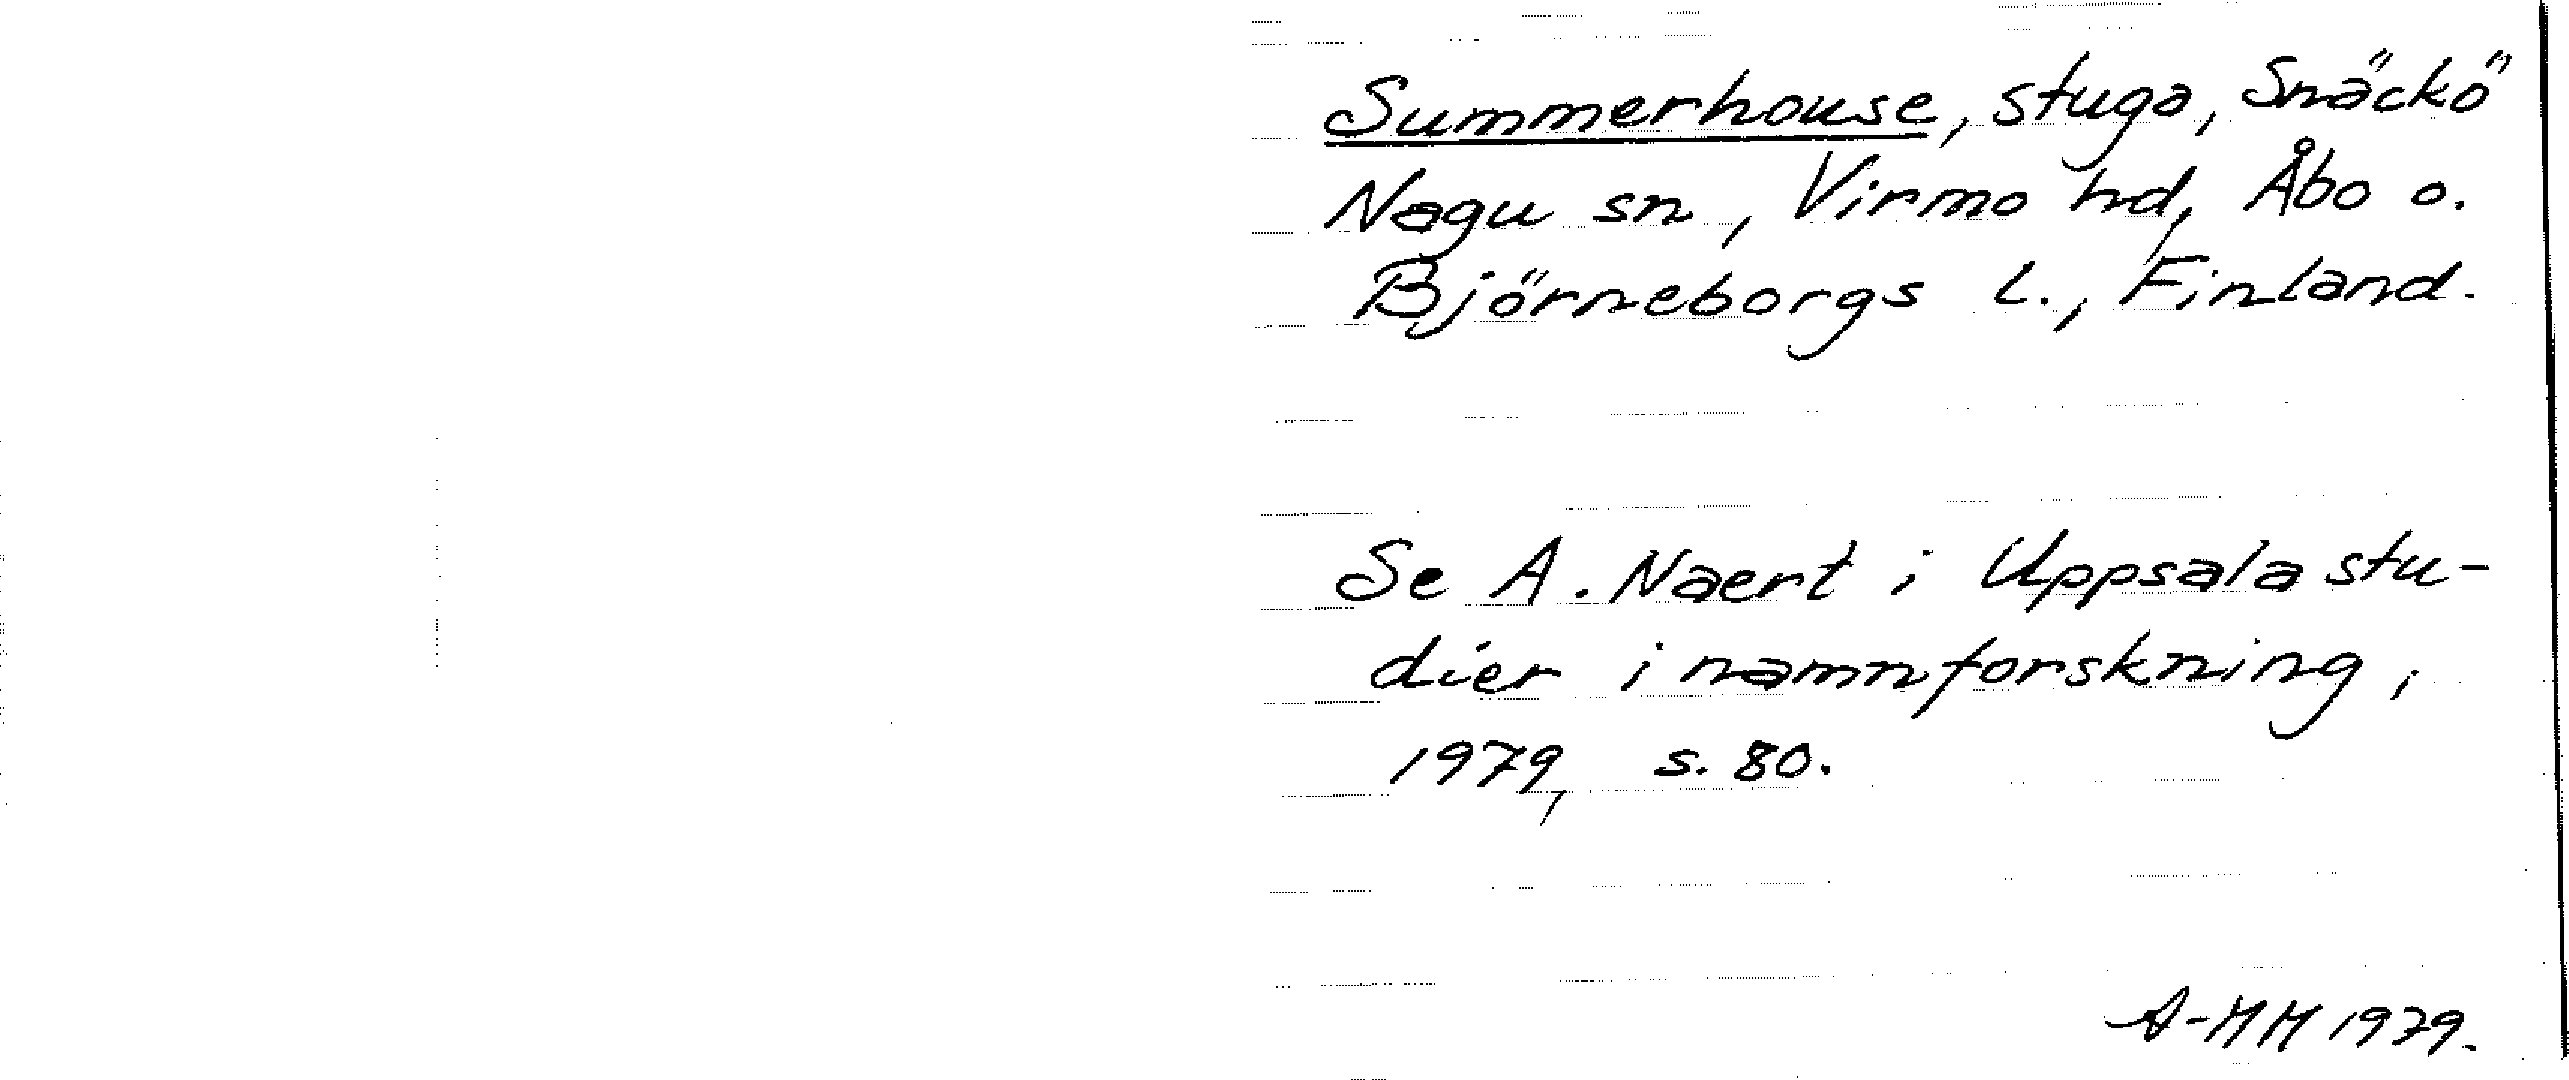 Summerhouse, stuga, Snäckö
Nagu sn, Virmo hd, Åbo o.
Björneborgs l., Finland.
Se A. Naert i Uppsala stu-
dier i namnforskning,
1979, s. 80.
A-MM 1979.